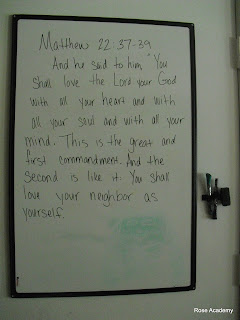 Matthew 22:37-39
And he said to him, "You
shall love the Lord your God
with all your heart and with
all your soul and with all your
mind. This is the great and
first commandment. And the
second is like it: You shall
love your neighbor as
yourself.
Rose Academy